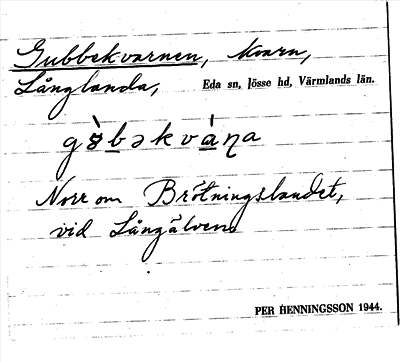 Gubbekvarnen, kvarn,
Långlanda, Eda sn, Jösse hd, Värmlands län.
gòbəkvàṇa
Norr om Brötningslandet,
vid Långälven.
PER HENNINGSSON 1944.